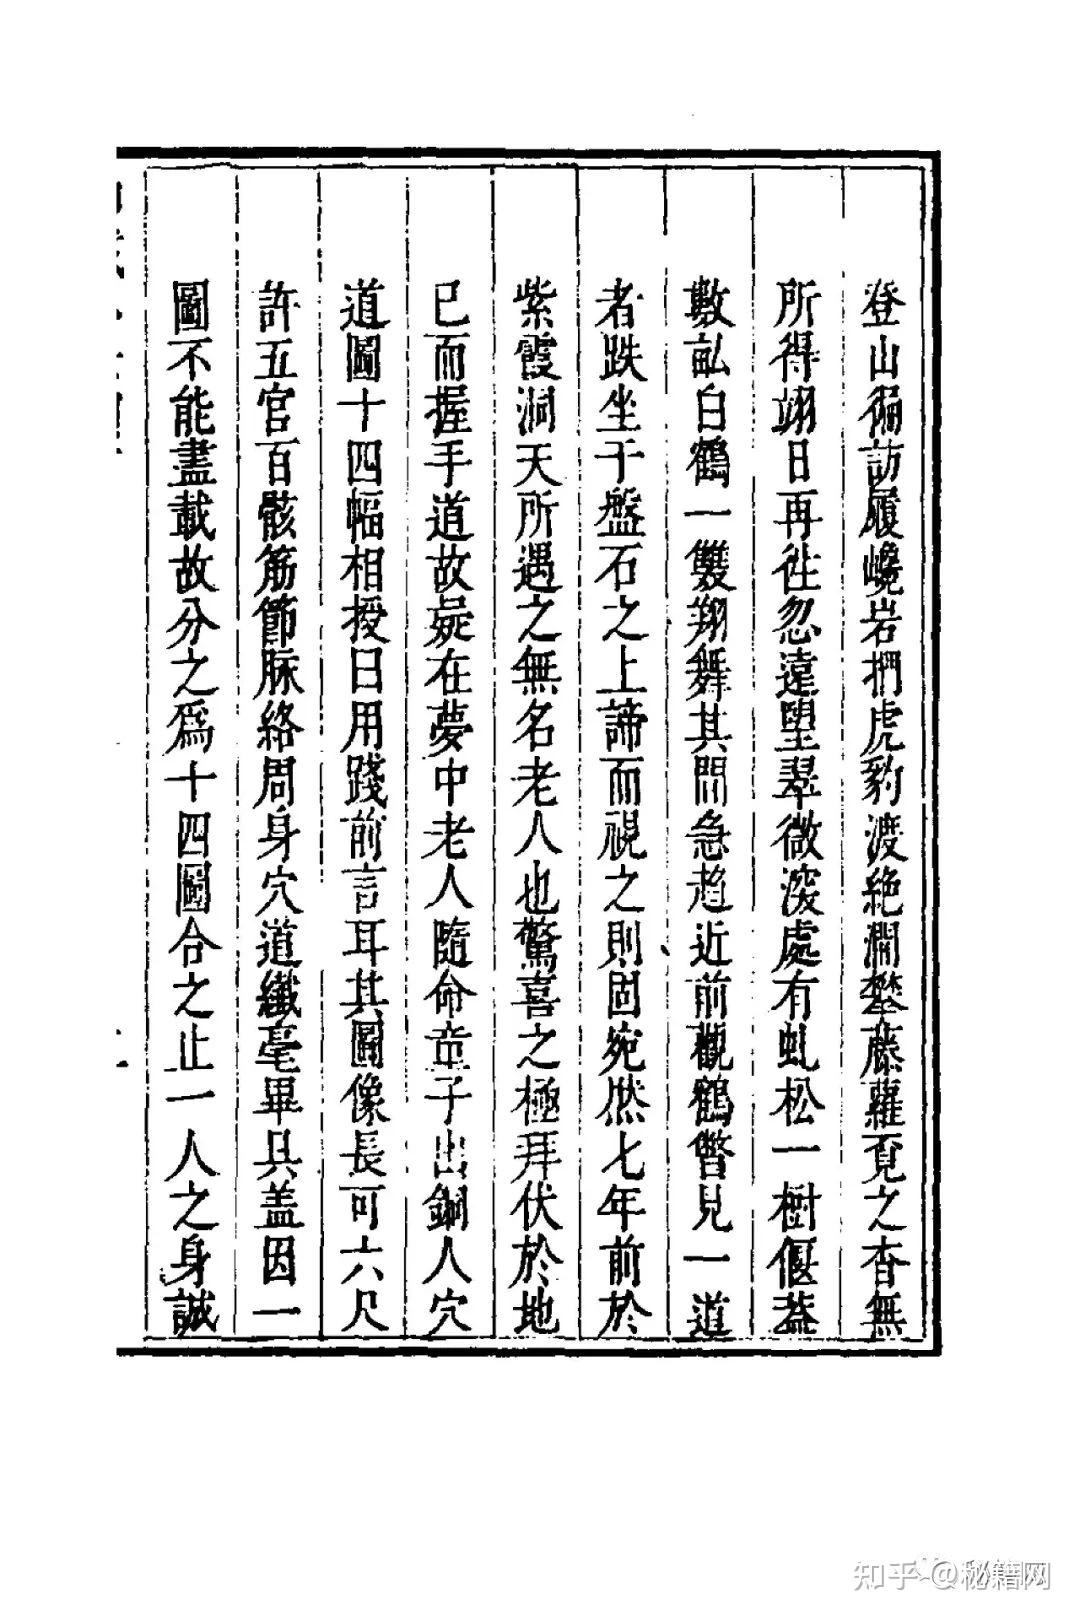 登山徧訪履巉岩捫虎豹渡絶澗攀藤蘿覓之杳無
所得翊日再徃忽遠望翠微深處有虬松一樹偃蓋
數畝白鶴一雙翔舞其間急趋近前觀鶴瞥見一道
者趺坐于盤石之上諦而視之則固宛然七年前於
紫霞洞天所遇之無名老人也驚喜之極拜伏於地
已而握手道故疑在夢中老人隨命童子出銅人穴
道圖十四幅相授曰用踐前言耳其圖像長可六尺
許五官百骸筋節脉絡周身穴道纖毫畢具盖因一
圖不能盡載故分之爲十四圖合之止一人之身誠
知乎 @秘籍网